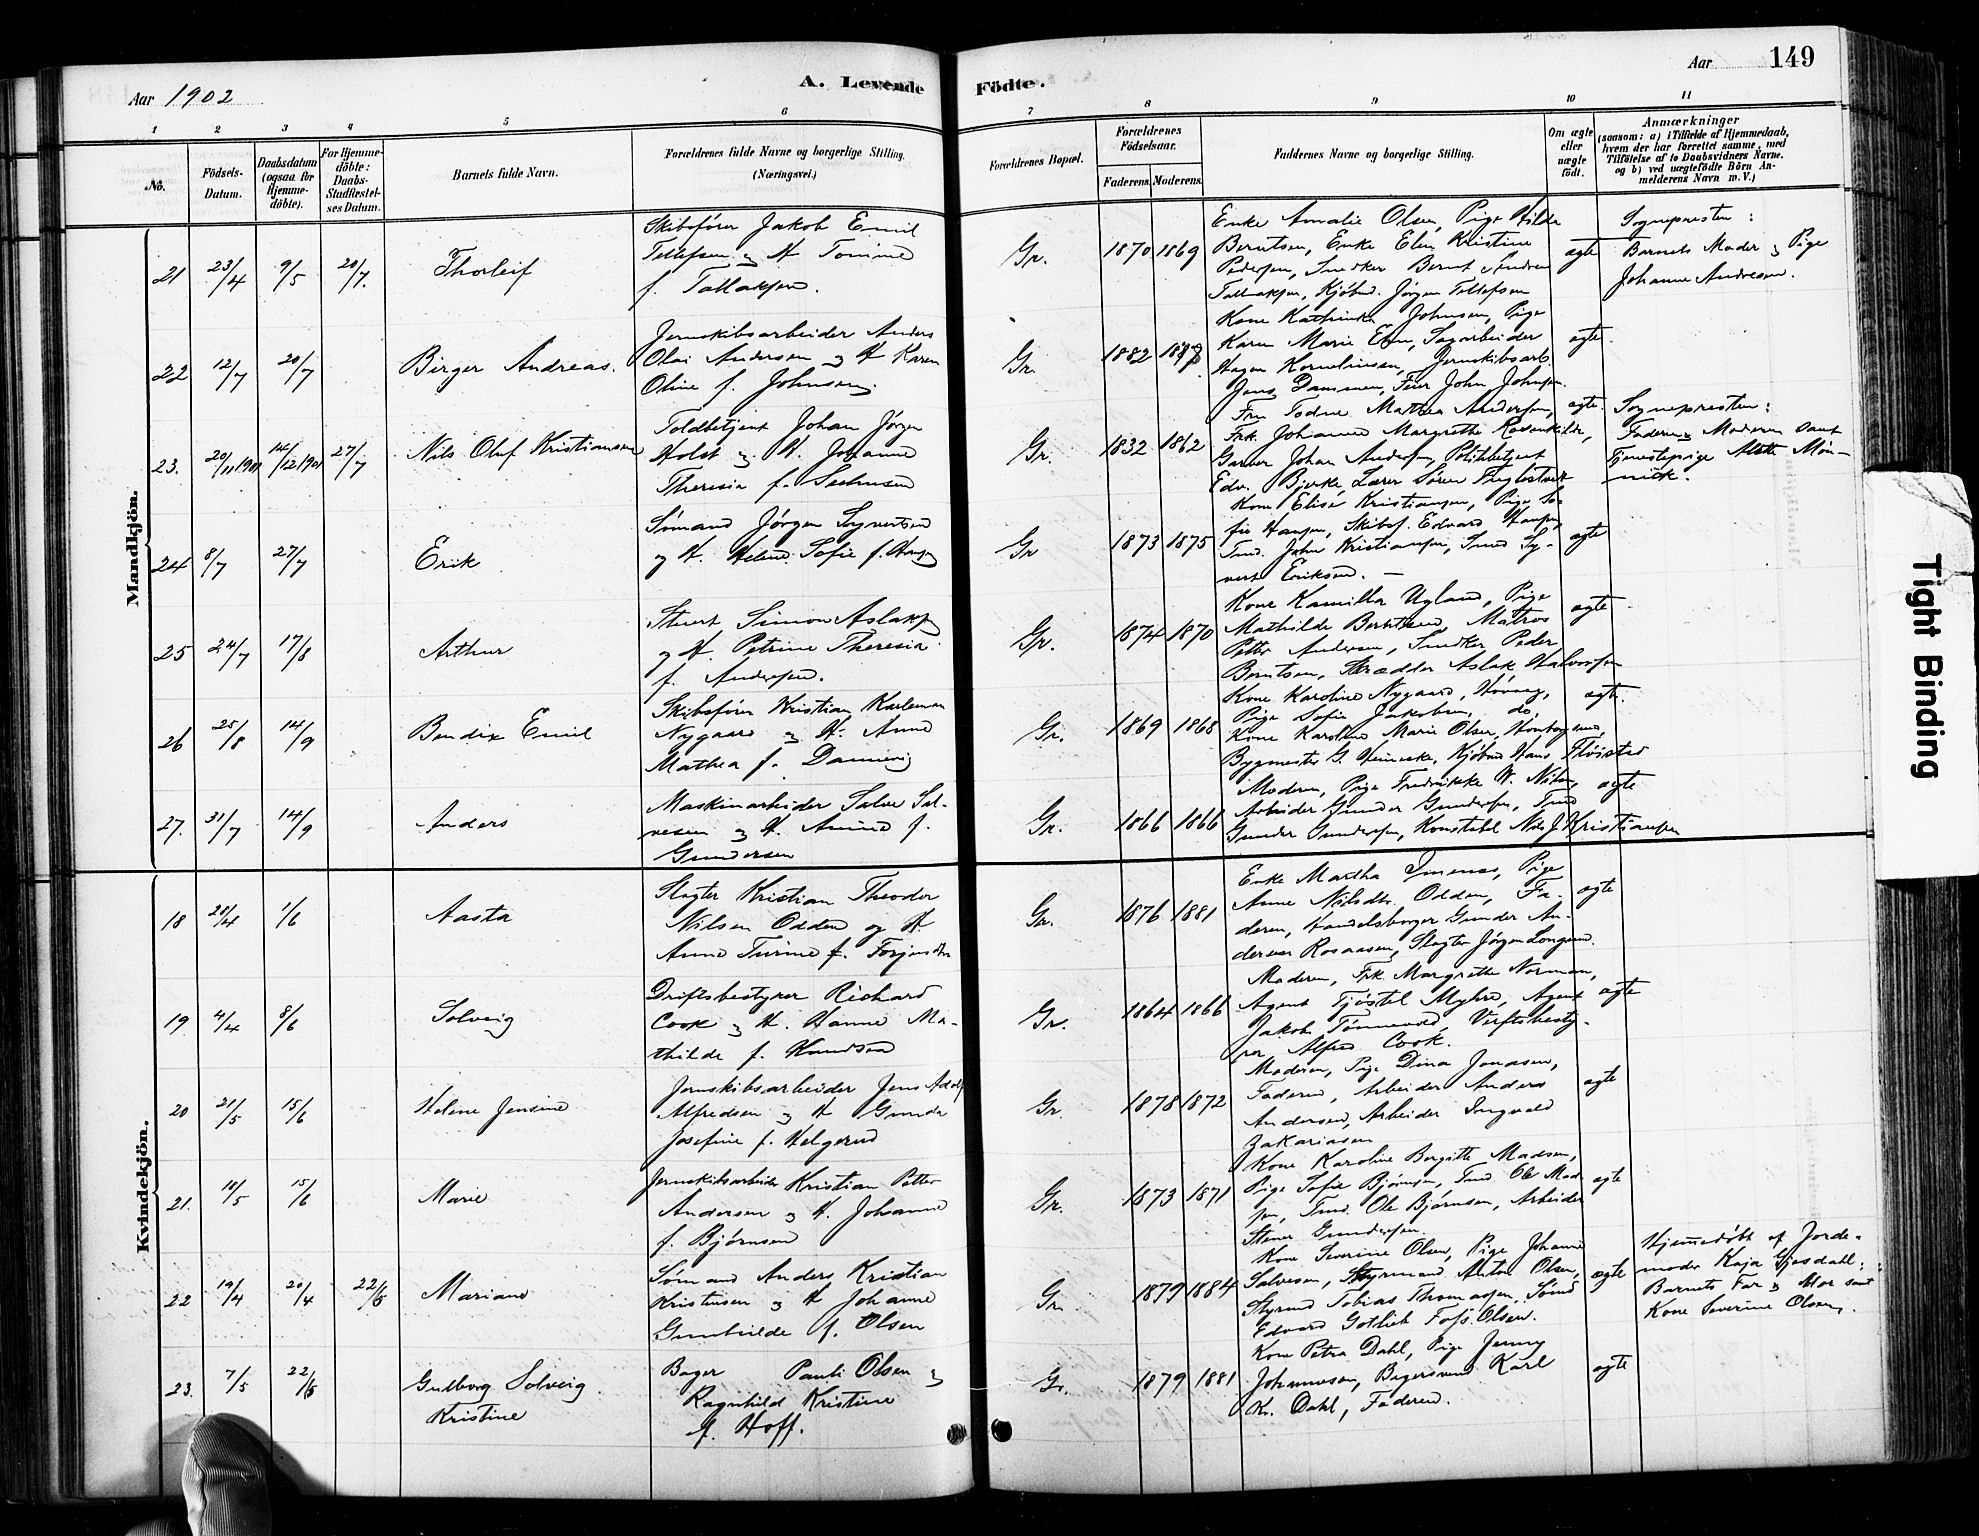 Aar 1902
A. Levende Födte.
Aar 149
1 2 3 4 5 6 7 8 9 10 11
No.
Födsels-
Datum.
Daabsdatum
(ogsaa for
Hjemme-
döbte).
For Hjemme-
döbte:
Daabs-
Stadfæstel-
ses Datum.
Barnets fulde Navn.
Forældrenes fulde Navne og borgerlige Stilling.
(Næringsvei.)
Forældrenes Bopæl.
Forældrenes
Födselsaar.
Faderens. Moderens.
Faddernes Navne og borgerlige Stilling.
Om ægte
eller
uægte
født.
Anmærkninger
(saasom: a) i Tilfælde af Hjemmedaab,
hvem der har forrettet samme, med
Tilföielse af to Daabsvidners Navne.
og b) ved uægtefödte Börn An-
melderens Navn m. V.)
Mandkjön.
21 23/4 9/5 20/7. Thorleif
Skibsfører Jakob Emil
Tellefsen og H. Tomine
f. Tallaksen.
Gr. 1870 1869
Enke Amalie Olsen, Pige Hilda
Berntsen, Enke Elen Kristine
Pedersen, Snedker Bernt Andreas
Tallaksen, Kjøbmd. Jørgen Tellefsen
ægte
Sognepresten:
Barnets Moder og Pige
Johanne Andresen.
22 12/7 20/7 Birger Andreas.
Jernskibsarbeider Anders
Olai Andersen og H. Karen
Oline f. Johnsen.
Gr. 1882
Kone Kathinka Johnsen, Pige
Karen Marie Elen, Sagarbeider
Hagen Kornelinsen, Jernskibsarb.
Jens Dammen, Fyr John Johnsen.
ægte.
23. 20/11 1901 14/12 1901 27/7 Nils Oluf Kristiansen
Toldbetjent Johan Jørgen
Holst og H. Johanne
Theresia f. Seehusen
Gr. 1832 1862
Fru Todne Mathea Andersen,
Frk. Johanne Margrethe Rosenkilde,
Garver Johan Andersen, Politibetjent
Edv. Bjerke Lærer Sören Fuglestvedt
ægte.
Sognepresten:
Faderen og Moderen samt
Tjenestepige Alette Møn-
nick.
24 8/7 27/7 Erik
Sømand Jørgen Syvertsen
og H. Helene Sofie f. Hansen
Gr 1873 1875
Kone Elise Kristiansen, Pige So-
fie Hansen, Skibsf. Edvard Hansen,
Tmd. John Kristiansen, Smed Sy-
vert Eriksen. —
ægte
25 24/7 17/8 Arthur
Stuert Simon Aslaksen
og H. Petrine Theresia
f. Andersen.
Gr. 1874 1870
Kone Kamilla Ugland, Pige
Mathilde Berntsen, Matros
Petter Andersen, Snedker Peder
Berntsen, Skrædder Aslak Halvorsen
ægte
26 25/8 14/9 Bendix Emil
Skibsfører Kristian Karleman
Nygaard og H. Anne
Mathea f. Dannevig
Gr. 1869 1868
Kone Karoline Nygaard, Høvaag,
Pige Sofie Jakobsen, do.
Kone Karoline Marie Olsen,
Bygmester G. Heinecke, Kjøbmd Hans Fløistad
ægte.
27. 31/7 14/9 Anders
Maskinarbeider Salve Sal-
vesen og H. Amine f.
Gundersen
Gr. 1866 1866
Moderen, Pige Fredrikke W. Nilsen,
Arbeider Gunder Gundersen, Tmd
Gunder Gundersen, Konstabel Nils J. Kristiansen
ægte
Kvindekjön.
18 20/4 1/6 Aasta
Slagter Kristian Theodor
Nilsen Odden og H.
Anne Turine f. Torjusdtr
Gr. 1876 1881
Enke Martha Imenæs, Pige
Anne Nilsdtr. Odden, Fa-
deren, Handelsborger Gunder An-
dersen Rosaasen, Slagter Jørgen Longum.
ægte
19. 4/4 8/6 Solveig
Driftsbestyrer Richard
Cook og H. Hanne Ma-
thilde f. Knudsen
Gr. 1864 1866
Moderen, Frk. Margrethe Norman,
Agent Tjøstel Myhre, Agent
Jakob Tønnevold, Verftsbesty-
rer Alfred Cook.
ægte
20 21/5 15/6 Helene Jensine
Jernskibsarbeider Jens Adolf
Alfredsen og H Gunda
Josefine f. Helgerud
Gr. 1878 1872
Moderen, Pige Dina Jonassen,
Faderen, Arbeider Anders
Andersen, Arbeider Ingvald
Zakariasen
ægte
21. 10/5 15/6 Marie
Jernskibsarbeider Kristian Petter
Andersen og H. Johanne
f. Bjørnsen
Gr. 1873 1871
Kone Karoline Bergitte Madsen,
Pige Sofie Bjørnsen, Tmd Ole Mad-
sen, Tmd. Ole Bjørnsen, Arbeider
Stener Gundersen
ægte
22 19/4 20/4 22/6 Mariane
Sømand Anders Kristian
Kristensen og H Johanne
Gunhilde f. Olsen
Gr. 1879 1884
Kone Severine Olsen, Pige Johanne
Salvesen, Styrmand Anton Olsen,
Styrmd Tobias Thomassen, Sømd
Edvard Gotlieb Tofs. Olsen.
ægte
Hjemmedøbt af Jorde-
moder Kaja Gjesdahl:
Barnets Far og Mor samt
Kone Severine Olsen.
23. 7/5 22/6 Gudborg Solveig
Kristine
Bager Pauli Olsen og
Ragnhild Kristine
f. Hoff.
Gr. 1879 1881
Kone Petra Dahl, Pige Jenny
Johannesen, Bagersvend Karl
Kr. Dahl, Faderen.
ægte
Tight Binding